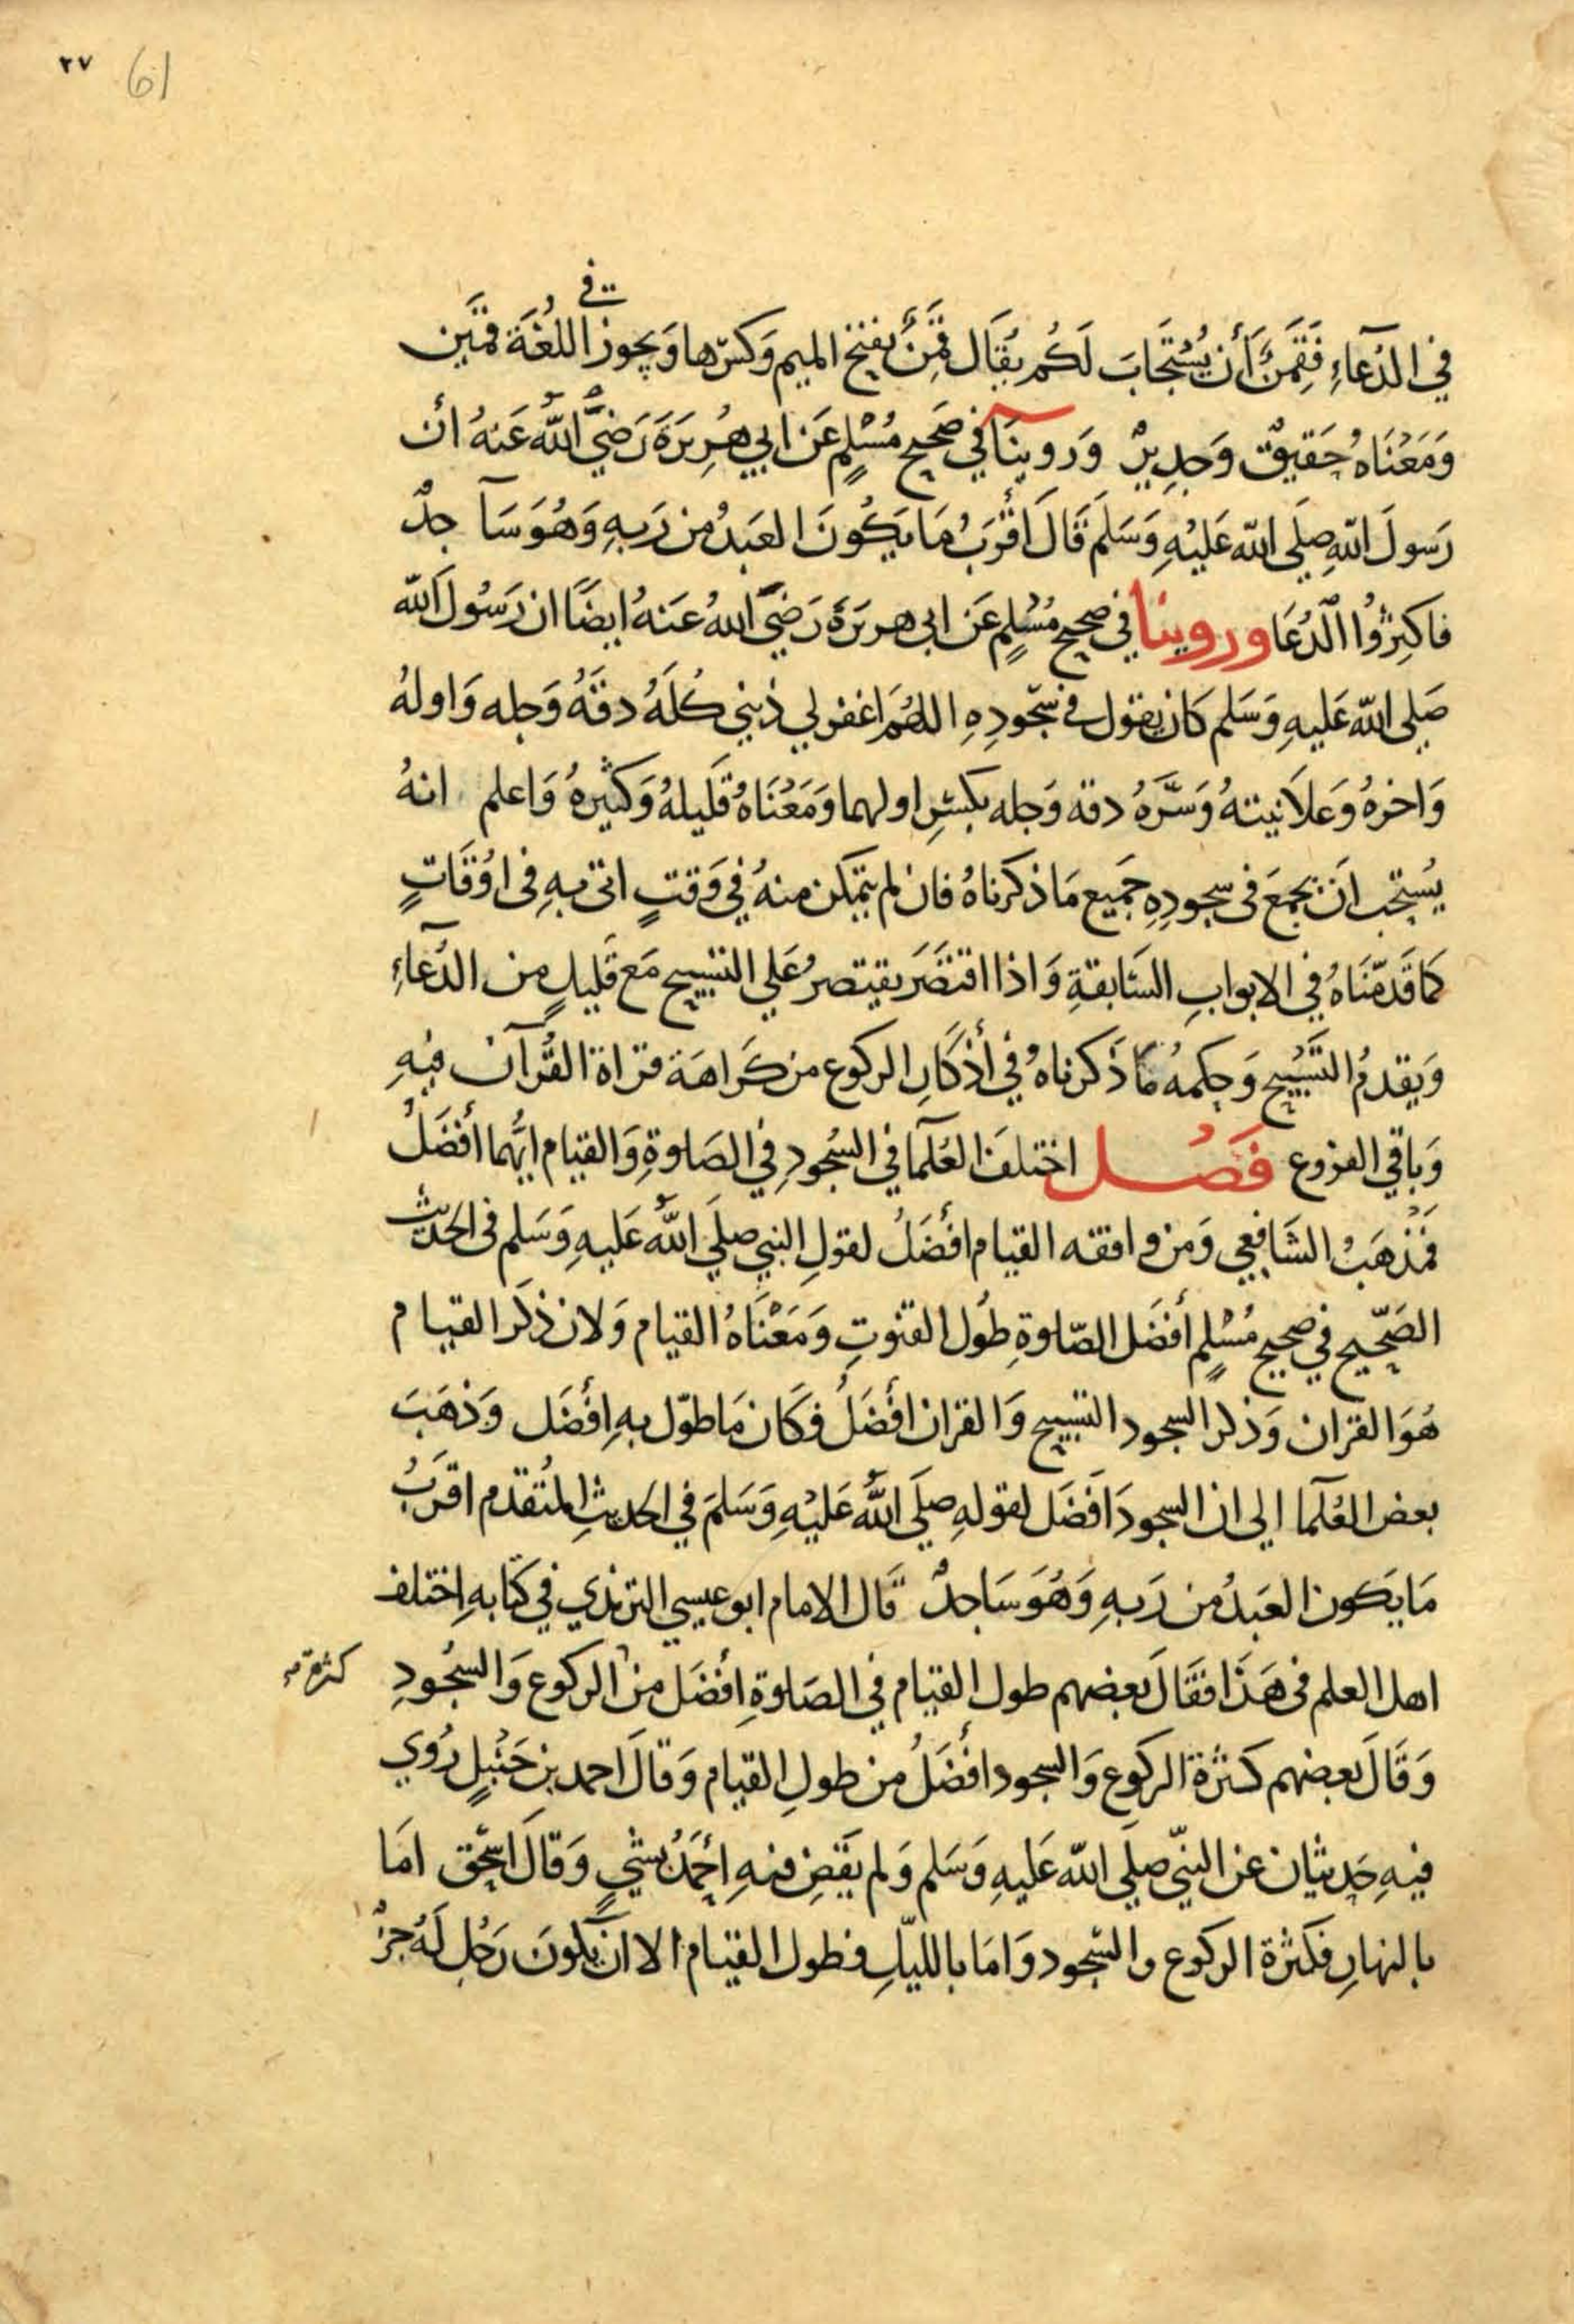 ٢٧ 61
في
في الدُعَآءِ فَقَمَنٌ أَن يُسْتَجَابَ لَكُم يُقَال قَمِنٌ بفتح الميم وَكسرها وَيجوز اللغَة قمَين
وَمَعْنَاهُ حَقيقٌ وَجدِيرٌ وَروينَا في صَحيح مُسْلِمٍ عَن ابي هُرِيرَةَ رَضيَ اللهُ عَنهُ أن
رَسولَ اللهِ صلى الله عَليْهِ وَسَلَم قَالَ اقْرَبُ مَا يَكُونَ العَبدُ من رَبهِ وَهُوَ سَآجدٌ
فاكثِرُوا الدُعَا وروينا في صحيح مُسْلِمٍ عَن ابي هريرَةَ رَضيَ اللهُ عَنهُ ايضًا ان رَسُولَ الله
صَلى الله عَليهِ وَسَلم كان يقول في سجُودِهِ اللهُمَ اغفر لي ذنبي كُلَهُ دقَهُ وَجله وَاولهُ
وَاخرهُ وَعَلاَنيتهُ وَسَرَّهُ دقه وَجله بكسرِ اولهما وَمَعْنَاهُ قَليلهُ وَكثيرهُ وَاعلم انهُ
يُستحب انَ يجمَعَ في سجودِهِ جَميع مَا ذكرناهُ فان لم يتمكن منهُ في وَقتٍ اتى بهِ في اوْقَاتٍ
كمَا قَدمّنَاهُ في الابوابِ السَابقةِ وَاذا اقتصَرَ يقتصرُ عَلي التسبيح مَع قَليلٍ من الدُعَآءِ
وَيقدمُ التَسْبيح وَحكمهُ مَا ذَكرناهُ في أذكَارِ الركوع من كَرَاهَة قراة القُرآن فيهِ
وَباقي الفروع فَصْل اختلفَ العُلمَآ في السُجودِ في الصَلوةِ وَالقيام ايهُما أفضَلُ
فمَذهَبُ الشَافعي وَمن وافقه القيام أفضَلُ لقولِ النبي صلَى اللهُ عَليهِ وَسَلم في الحَديث
الصَحّيح في صحيح مُسْلِمٍ أفضَل الصّلوةِ طُول القنوتِ وَمَعْنَاهُ القيام وَلان ذكَر القيام
هُوَ القران وَذكر السجود التسبيح وَالقران أفضَلُ فَكَان مَا طوّل بهِ أفضَل وَذهَبَ
بعض العُلمَآ الي ان السجودَ افَضَل لقولهِ صلَى اللهُ عَليْهِ وَسَلمَ في الحديثِ المُتقدم اقرَبُ
مَا يَكون العَبدُ من رَبهِ وَهُوَ سَاجدٌ قَال الامام ابو عيسي الترمذي في كتَابهِ اِختلف
اهل العلم في هَذَا فقَالَ بَعضهم طول القيام في الصَلوةِ أفضَل من الركوع وَالسجُودِ
كثرة صح
وَقَالَ بَعضهم كثرَة الركوع وَالسجود افضَلُ من طولِ القيام وَقالَ احمد بن حَنْبلٍ رُوي
فيهِ حَديثان عَن النبّي صلَي الله عَليهِ وَسَلم وَلم يَقضِ فيهِ أحْمَدُ بشْيٍ وَقالَ اسحٰق امَا
بالنهارِ فكثرة الركوع والسجود وَامَا بالليلِ فطول القيام الا ان يكونَ رَجُل لَهُ جزْ